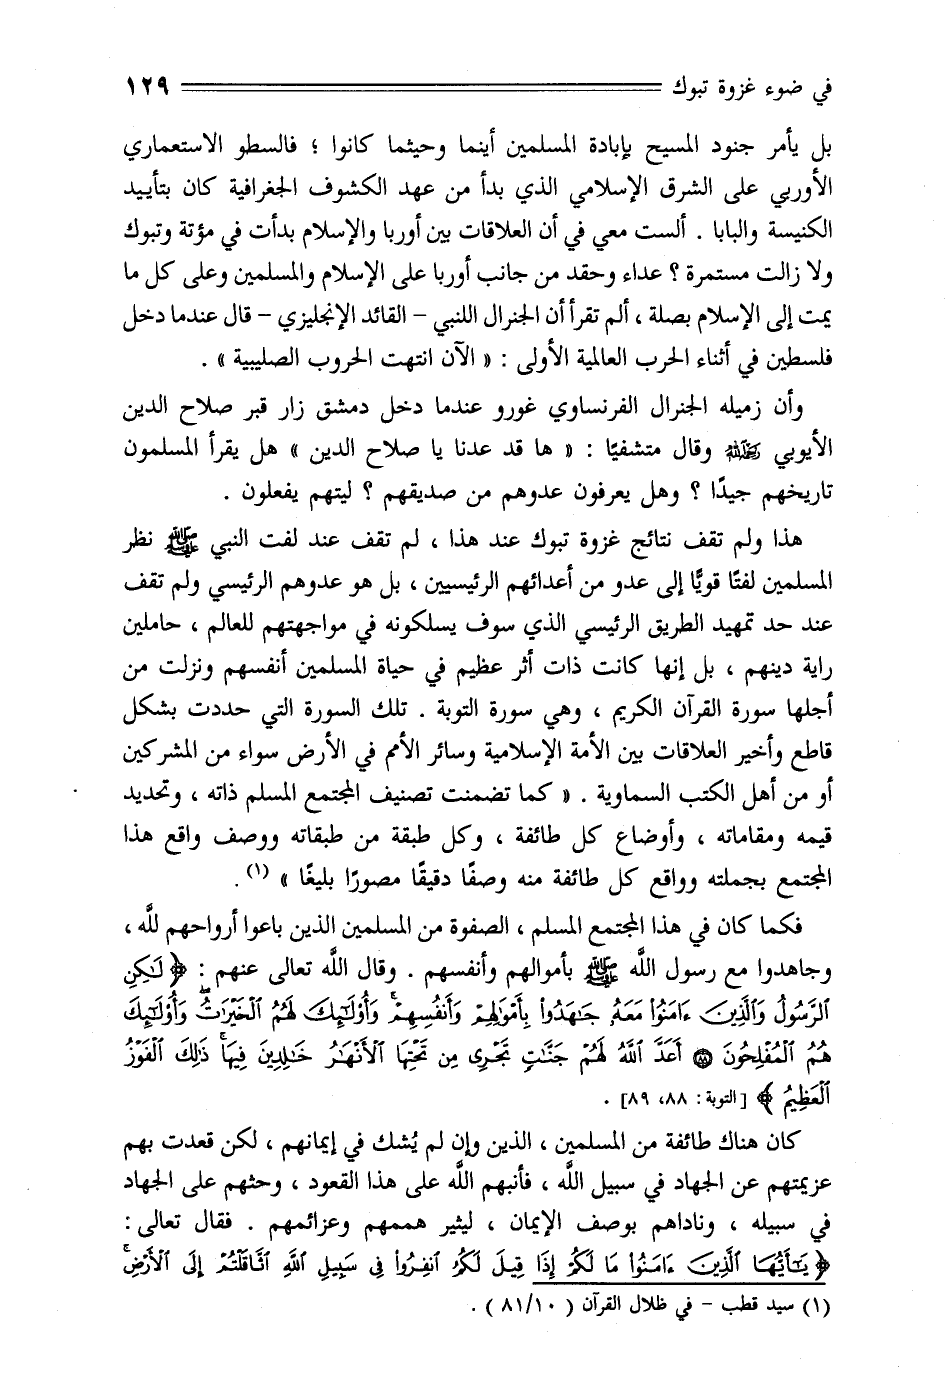 في ضوء غزوة تبوك ١٢٩
بل يأمر جنود المسيح بإبادة المسلمين أينما وحيثما كانوا ؛ فالسطو الاستعماري
الأوربي على الشرق الإسلامي الذي بدأ من عهد الكشوف الجغرافية كان بتأييد
الكنيسة والبابا . ألست معي في أن العلاقات بين أوربا والإسلام بدأت في مؤتة وتبوك
ولا زالت مستمرة ؟ عداء وحقد من جانب أوربا على الإسلام والمسلمين وعلى كل ما
يمت إلى الإسلام بصلة ، ألم تقرأ أن الجنرال اللنبي - القائد الإنجليزي - قال عندما دخل
فلسطين في أثناء الحرب العالمية الأولى : « الآن انتهت الحروب الصليبية » .
وأن زميله الجنرال الفرنساوي غورو عندما دخل دمشق زار قبر صلاح الدين
الأيوبي رحمه الله وقال متشفيًا : « ها قد عدنا يا صلاح الدين » هل يقرأ المسلمون
تاريخهم جيدًا ؟ وهل يعرفون عدوهم من صديقهم ؟ ليتهم يفعلون .
هذا ولم تقف نتائج غزوة تبوك عند هذا ، لم تقف عند لفت النبي ﷺ نظر
المسلمين لفتًا قويًّا إلى عدو من أعدائهم الرئيسيين ، بل هو عدوهم الرئيسي ولم تقف
عند حد تمهيد الطريق الرئيسي الذي سوف يسلكونه في مواجهتهم للعالم ، حاملين
راية دينهم ، بل إنها كانت ذات أثر عظيم في حياة المسلمين أنفسهم ونزلت من
أجلها سورة القرآن الكريم ، وهي سورة التوبة . تلك السورة التي حددت بشكل
قاطع وأخير العلاقات بين الأمة الإسلامية وسائر الأمم في الأرض سواء من المشركين
أو من أهل الكتب السماوية . « كما تضمنت تصنيف المجتمع المسلم ذاته ، وتحديد
قيمه ومقاماته ، وأوضاع كل طائفة ، وكل طبقة من طبقاته ووصف واقع هذا
المجتمع بجملته وواقع كل طائفة منه وصفًا دقيقًا مصورًا بليغًا » (١) .
فكما كان في هذا المجتمع المسلم ، الصفوة من المسلمين الذين باعوا أرواحهم للَّه ،
وجاهدوا مع رسول اللَّه ﷺ بأموالهم وأنفسهم . وقال اللَّه تعالى عنهم : ﴿ لَٰكِنِ
ٱلرَّسُولُ وَٱلَّذِينَ ءَامَنُوا۟ مَعَهُۥ جَٰهَدُوا۟ بِأَمْوَٰلِهِمْ وَأَنفُسِهِمْ ۚ وَأُو۟لَٰٓئِكَ لَهُمُ ٱلْخَيْرَٰتُ ۖ وَأُو۟لَٰٓئِكَ
هُمُ ٱلْمُفْلِحُونَ ۝٨٨ أَعَدَّ ٱللَّهُ لَهُمْ جَنَّٰتٍ تَجْرِى مِن تَحْتِهَا ٱلْأَنْهَٰرُ خَٰلِدِينَ فِيهَا ۚ ذَٰلِكَ ٱلْفَوْزُ
ٱلْعَظِيمُ ﴾ [التوبة : ٨٨، ٨٩] .
كان هناك طائفة من المسلمين ، الذين وإن لم يُشك في إيمانهم ، لكن قعدت بهم
عزيمتهم عن الجهاد في سبيل اللَّه ، فأنبهم اللَّه على هذا القعود ، وحثهم على الجهاد
في سبيله ، وناداهم بوصف الإيمان ، ليثير هممهم وعزائمهم . فقال تعالى :
﴿ يَٰٓأَيُّهَا ٱلَّذِينَ ءَامَنُوا۟ مَا لَكُمْ إِذَا قِيلَ لَكُمُ ٱنفِرُوا۟ فِى سَبِيلِ ٱللَّهِ ٱثَّاقَلْتُمْ إِلَى ٱلْأَرْضِ ۚ
(١) سيد قطب - في ظلال القرآن ( ٨١/١٠ ) .